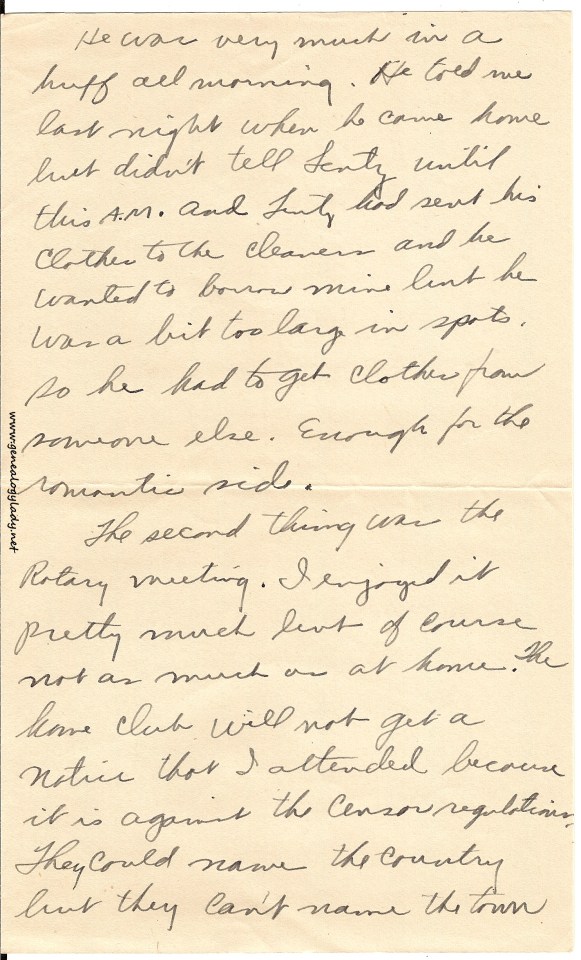 He was very much in a
huff all morning. He told me
last night when he came home
but didn't tell Senty until
this A.M. and Senty had sent his
clothes to the cleaners and he
wanted to borrow mine but he
was a bit too large in spots.
so he had to get clothes from
someone else. Enough for the
romantic side.
The second thing was the
Rotary meeting. I enjoyed it
pretty much but of course
not as much as at home. The
home club will not get a
notice that I attended because
it is against the censor regulations.
They could name the country
but they can't name the town
www.genealogylady.net